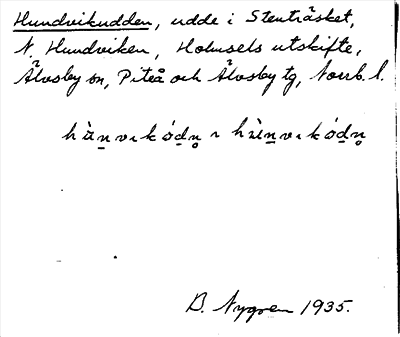 Hundvikudden, udde i Stenträsket,
N. Hundviken, Holmsels utskifte,
Älvsby sn, Piteå och Älvsby tg, Norrb. l.
B. Nygren 1935.